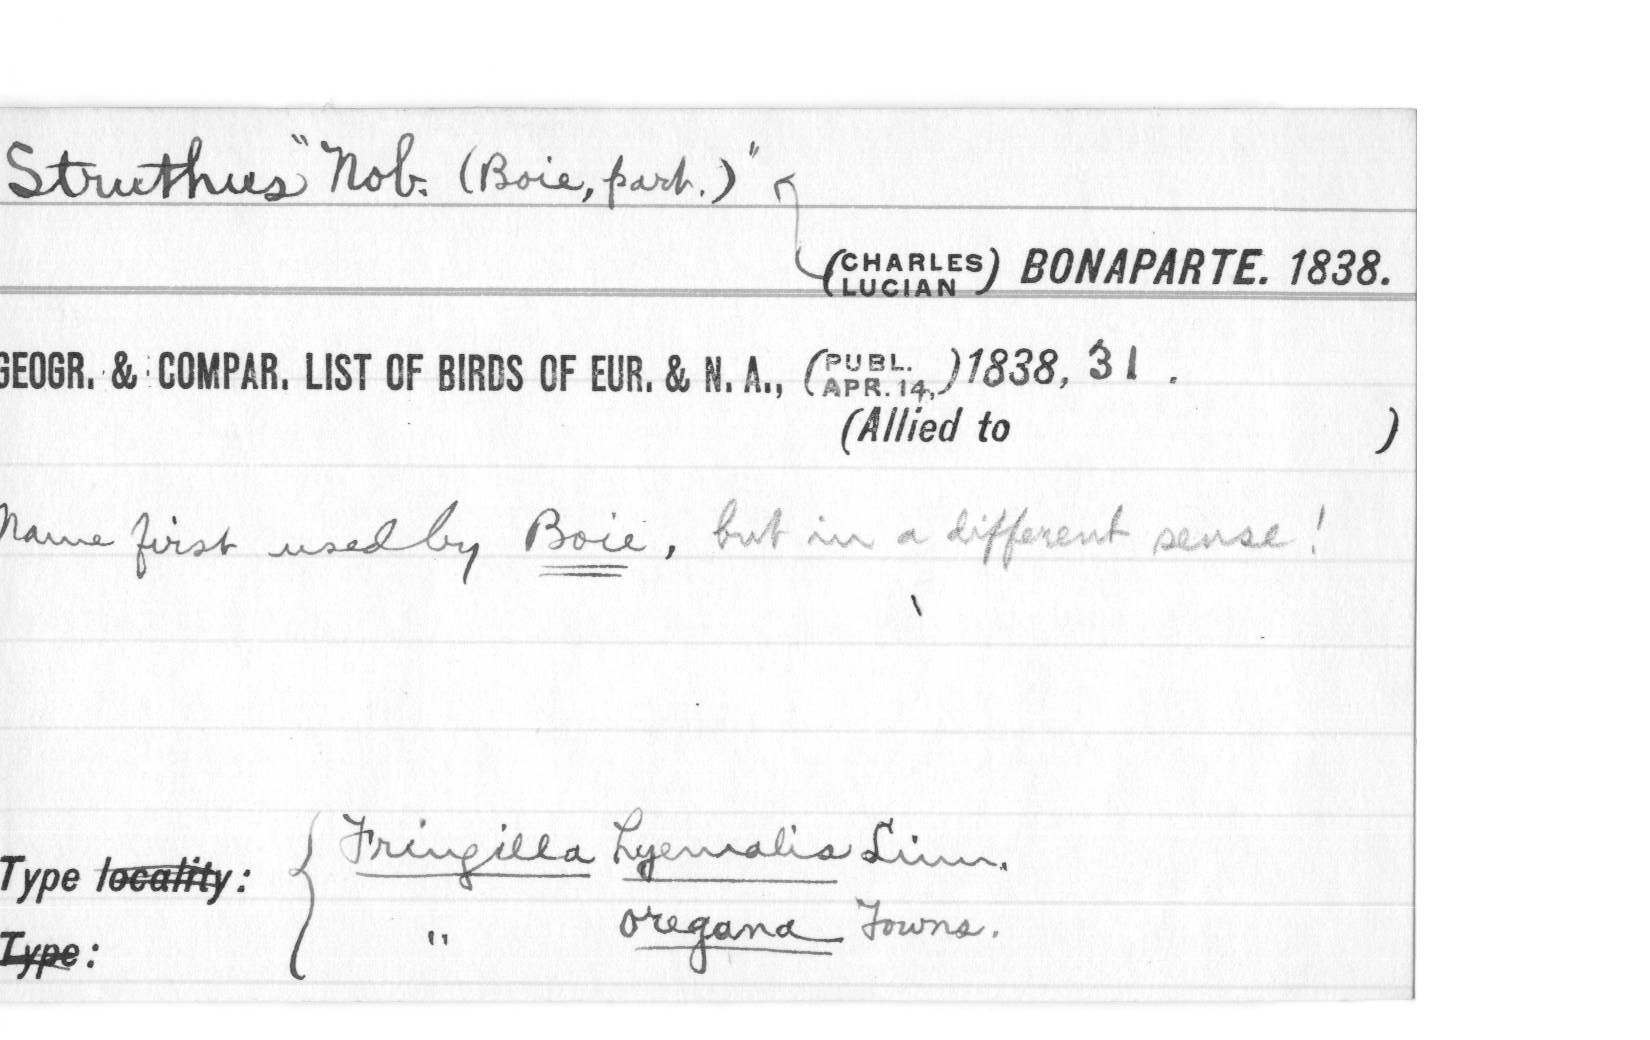 Struthus "Nob. (Boie, part.)"
(CHARLES LUCIAN) BONAPARTE. 1838.
GEOGR. & COMPAR. LIST OF BIRDS OF EUR. & N. A., (PUBL. APR. 14,) 1838, 31 .
(Allied to )
Name first used by Boie, but in a different sense!
Type locality: Fringilla hyemalis Linn.
Type: " oregana Towns.